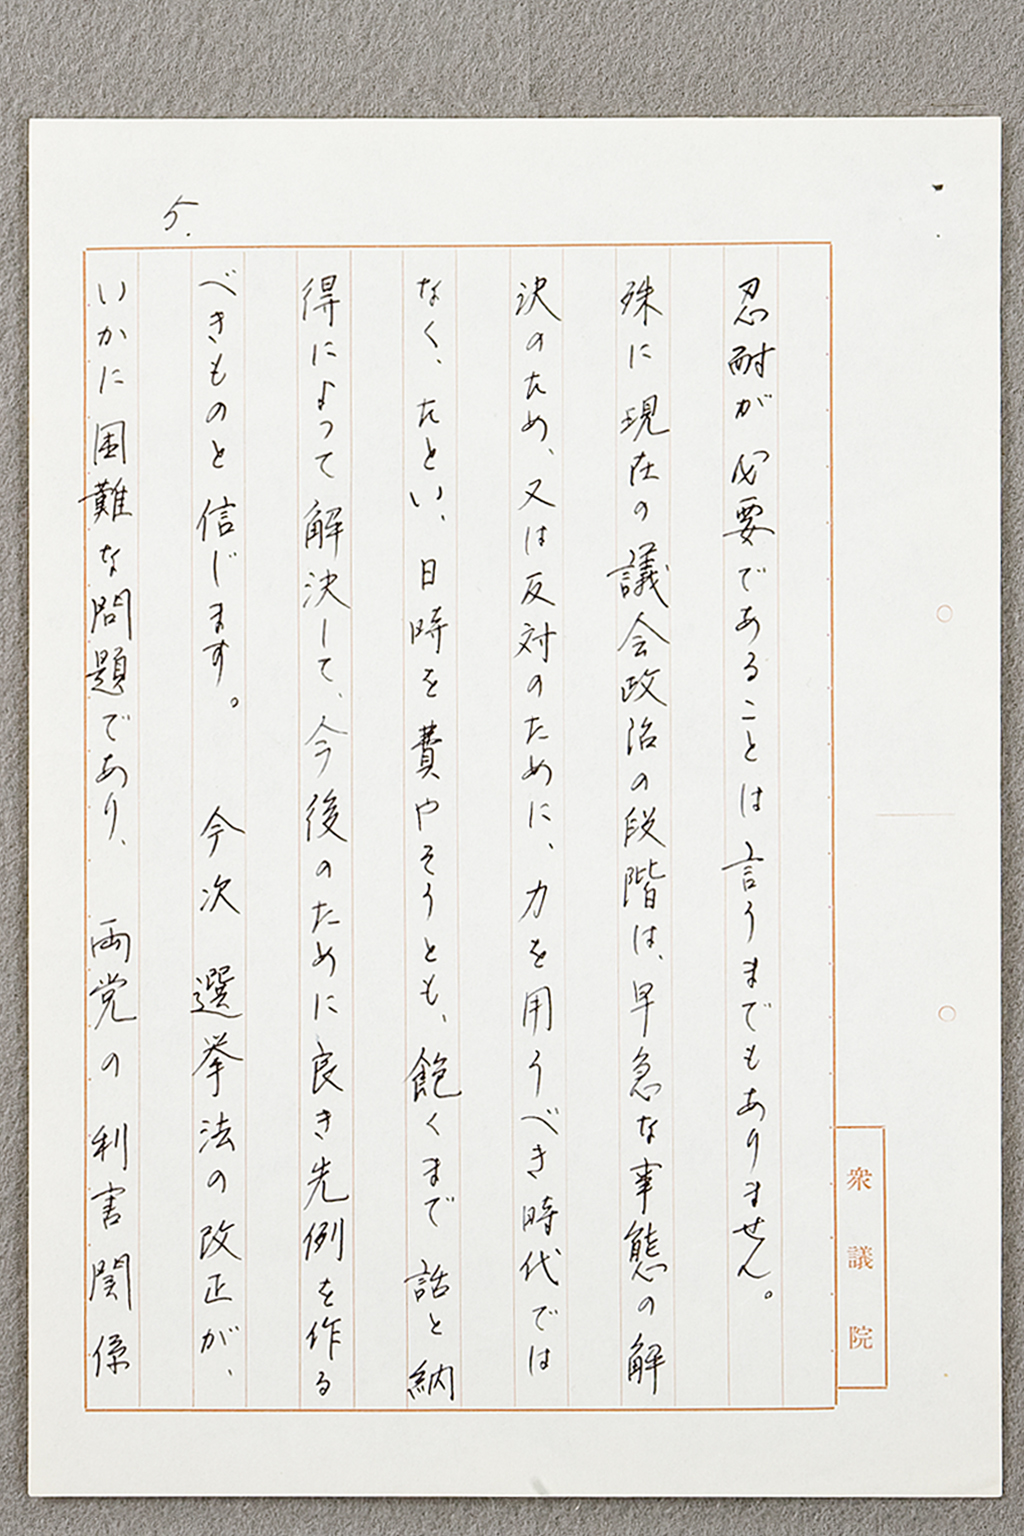 忍耐が必要であることは言うまでもありません。
殊に現在の議会政治の段階は、早急な事態の解
決のため、又は反対のために、力を用うべき時代では
なく、たとい、日時を費やそうとも、飽くまで話と納
得によって解決して、今後のために良き先例を作る
べきものと信じます。 今次選挙法の改正が、
いかに困難な問題であり、 両党の利害関係
衆議院